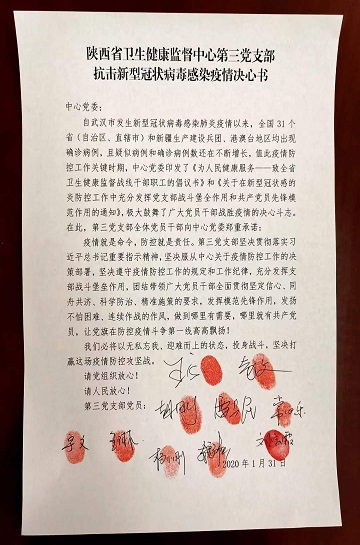 陕西省卫生健康监督中心第三党支部
抗击新型冠状病毒感染疫情决心书
中心党委：
自武汉市发生新型冠状病毒感染肺炎疫情以来，全国31个
省（自治区、直辖市）和新疆生产建设兵团、港澳台地区均出现
确诊病例，且疑似病例和确诊病例数还在不断增长，值此疫情防
控工作关键时期，中心党委印发了《为人民健康服务——致全省
卫生健康监督战线干部职工的倡议书》和《关于在新型冠状感的
炎防控工作中充分发挥党支部战斗堡垒作用和共产党员先锋模
范作用的通知》，极大鼓舞了广大党员干部战胜疫情的决心斗志。
在此，第三党支部全体党员干部向中心党委郑重承诺：
疫情就是命令，防控就是责任。第三党支部坚决贯彻落实习
近平总书记重要指示精神，坚决服从中心关于疫情防控工作的决
策部署，坚决遵守疫情防控工作的规定和工作纪律，充分发挥支
部战斗堡垒作用，团结带领广大党员干部全面贯彻坚定信心、同
舟共济、科学防治、精准施策的要求，发挥模范先锋作用，发扬
不怕困难、连续作战的作风，做到哪里有需要，哪里就有共产党
员，让党旗在防控疫情斗争第一线高高飘扬！
我们必将以无私忘我、迎难而上的状态，投身战斗，坚决打
赢这场疫情防控攻坚战。
请党组织放心！
请人民放心！
第三党支部党员：
2020年1月31日